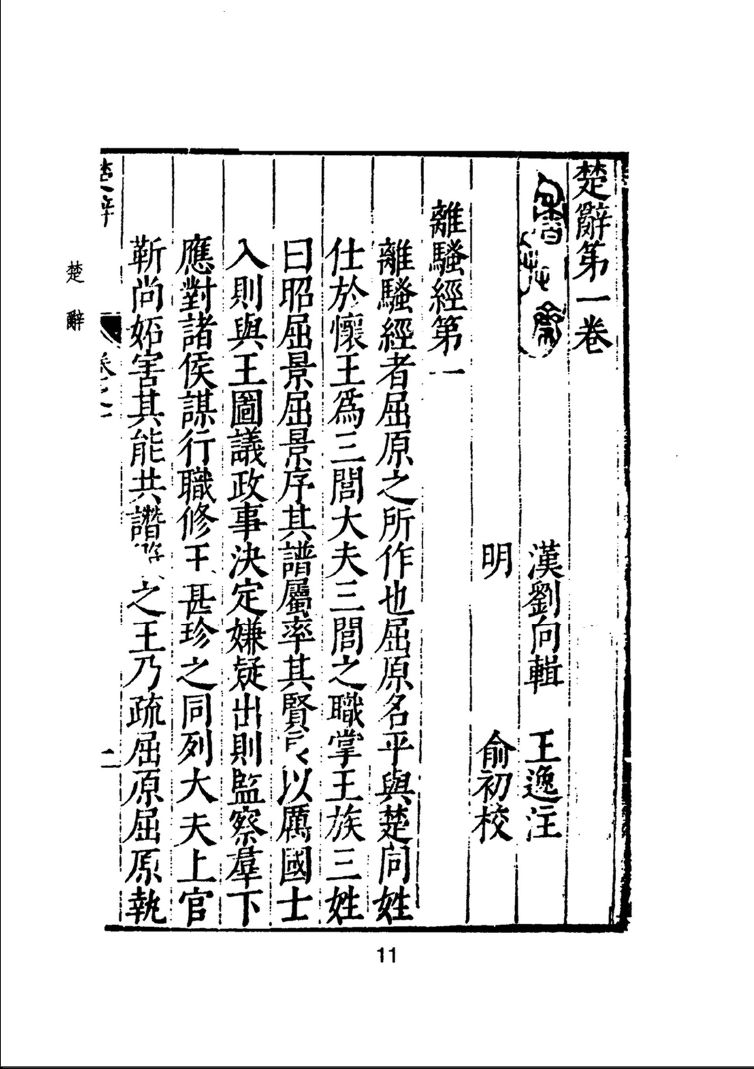 楚辭第一卷
漢劉向輯 王逸注
明 俞初校
離騷經第一
離騷經者屈原之所作也屈原名平與楚同姓
仕於懷王爲三閭大夫三閭之職掌王族三姓
曰昭屈景屈景序其譜屬率其賢以厲國士
入則與王圖議政事決定嫌疑出則監察羣下
應對諸侯謀行職修王甚珍之同列大夫上官
靳尚妬害其能共譖之王乃疏屈原屈原執
楚辭
卷之一
一
楚辭
11